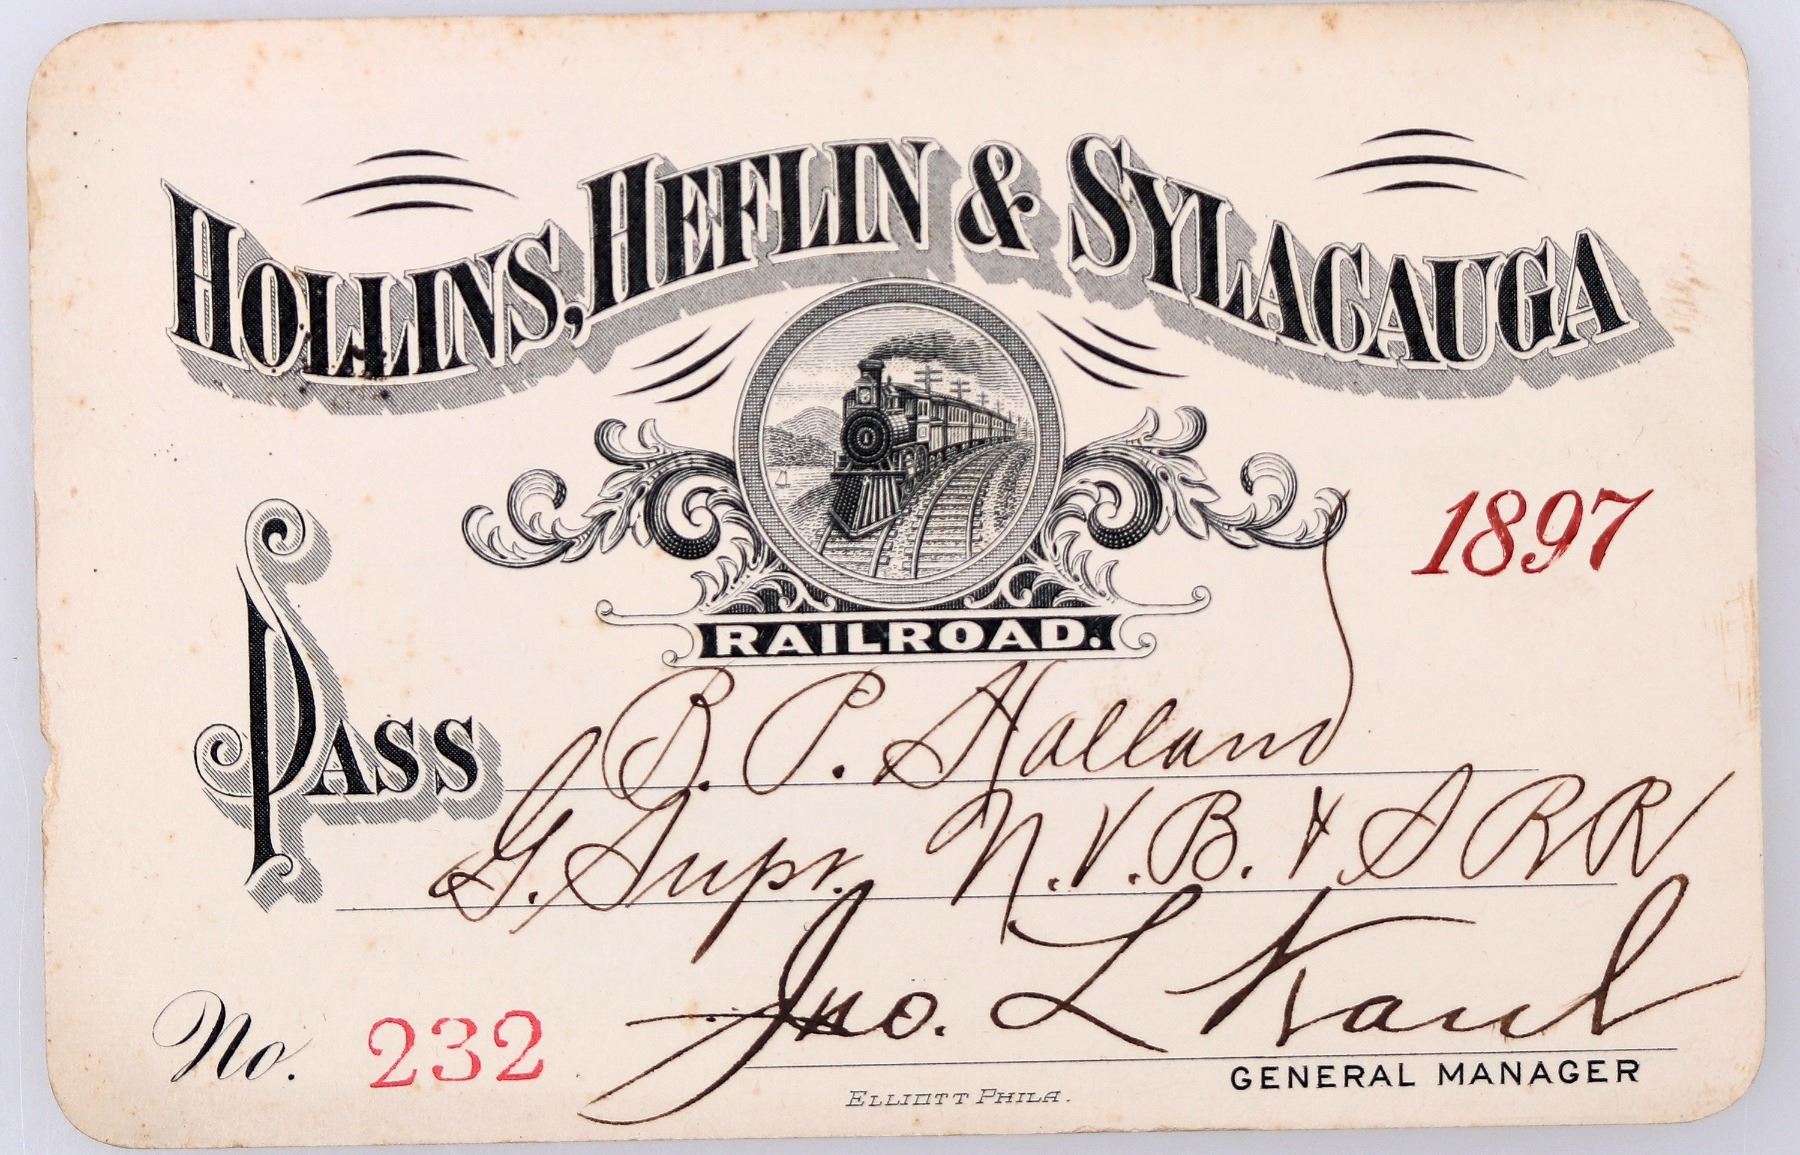 HOLLINS, HEFLIN & SYLACAUGA
RAILROAD.
1897
PASS B. P. Holland
G. Supt. N. V. B. & S RR
Jno. L Kaul
GENERAL MANAGER
No. 232
ELLIOTT PHILA.